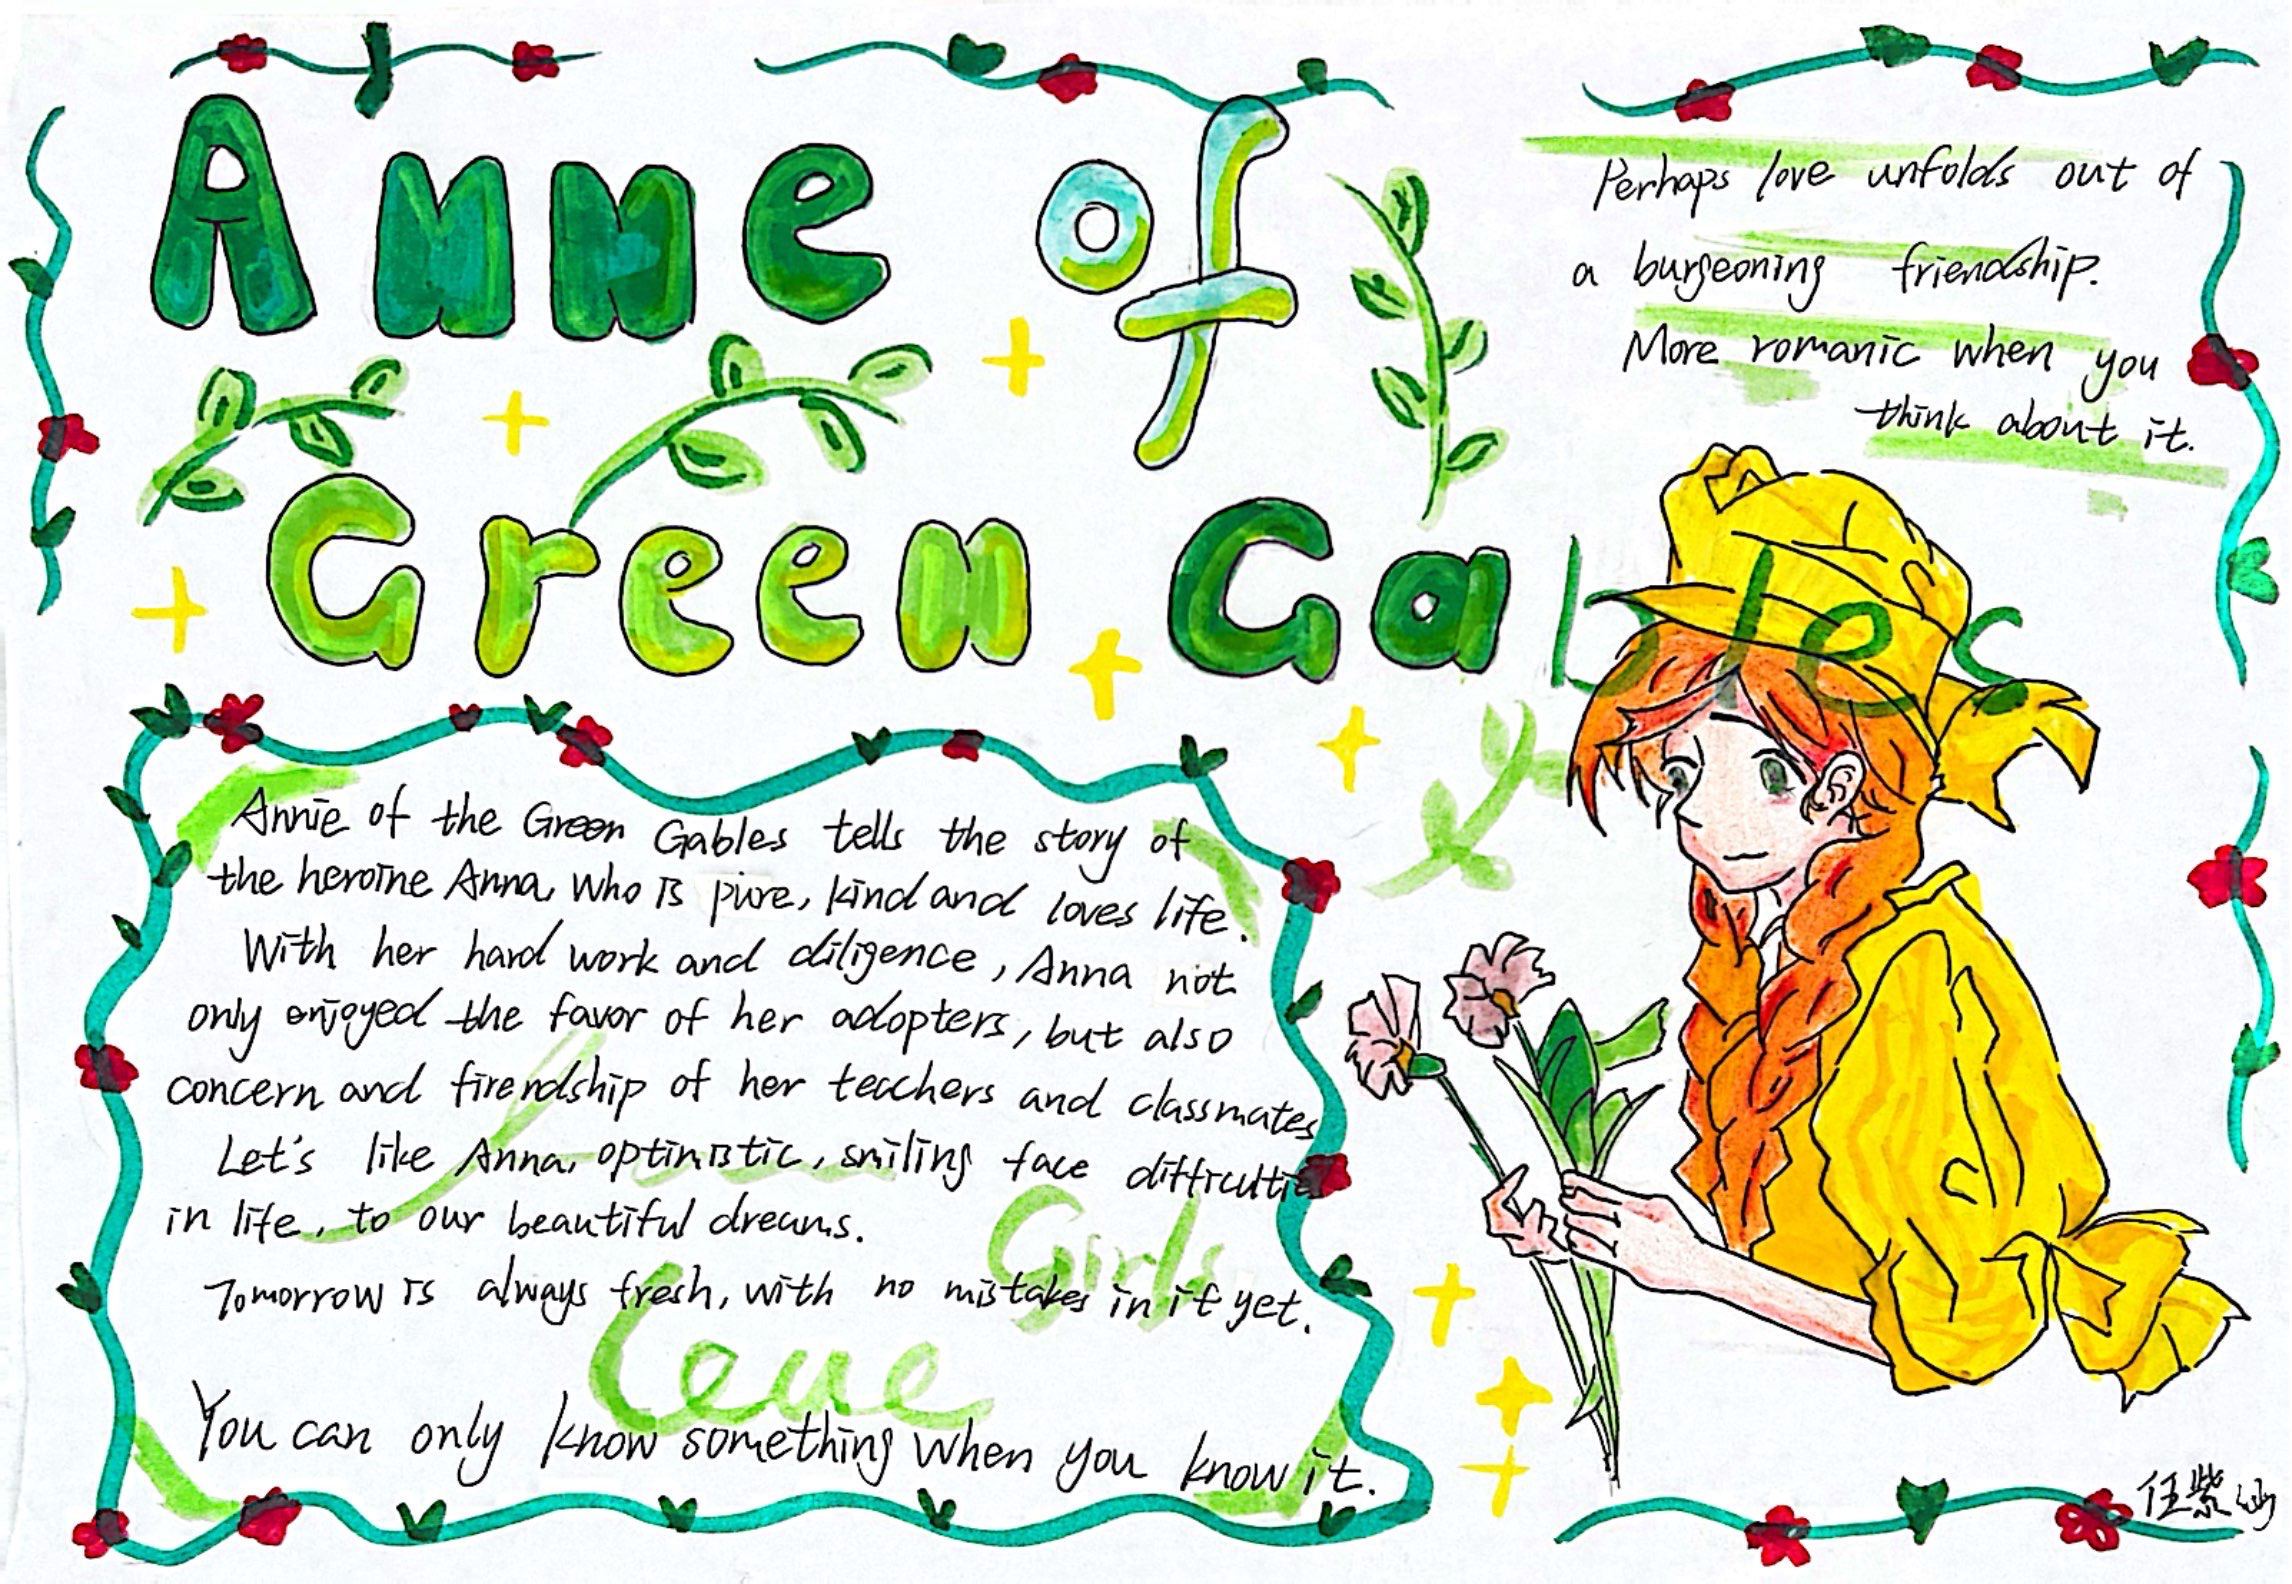 Anne of
Green Gables
Perhaps love unfolds out of
a burgeoning friendship.
More romanic when you
think about it.
Annie of the Green Gables tells the story of
the heroine Anna, who is pure, kind and loves life.
With her hard work and diligence, Anna not
only enjoyed the favor of her adopters, but also
concern and firendship of her teachers and classmates
Let's like Anna, optimistic, smiling face difficulties
in life, to our beautiful dreams.
Tomorrow is always fresh, with no mistakes in it yet.
Girls
You can only know something when you know it.
任紫